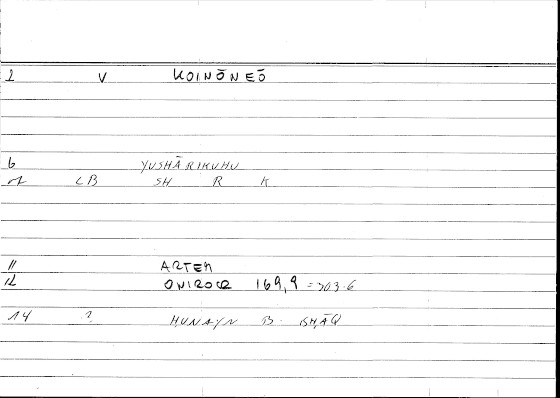 2 V KOINŌNEŌ
6 YUSHĀRIKUHU
CB SH R K
11 ARTEM
12 ONIROCR 169,9 = 303.6
14 ? HUNAYN B. ISḤĀQ